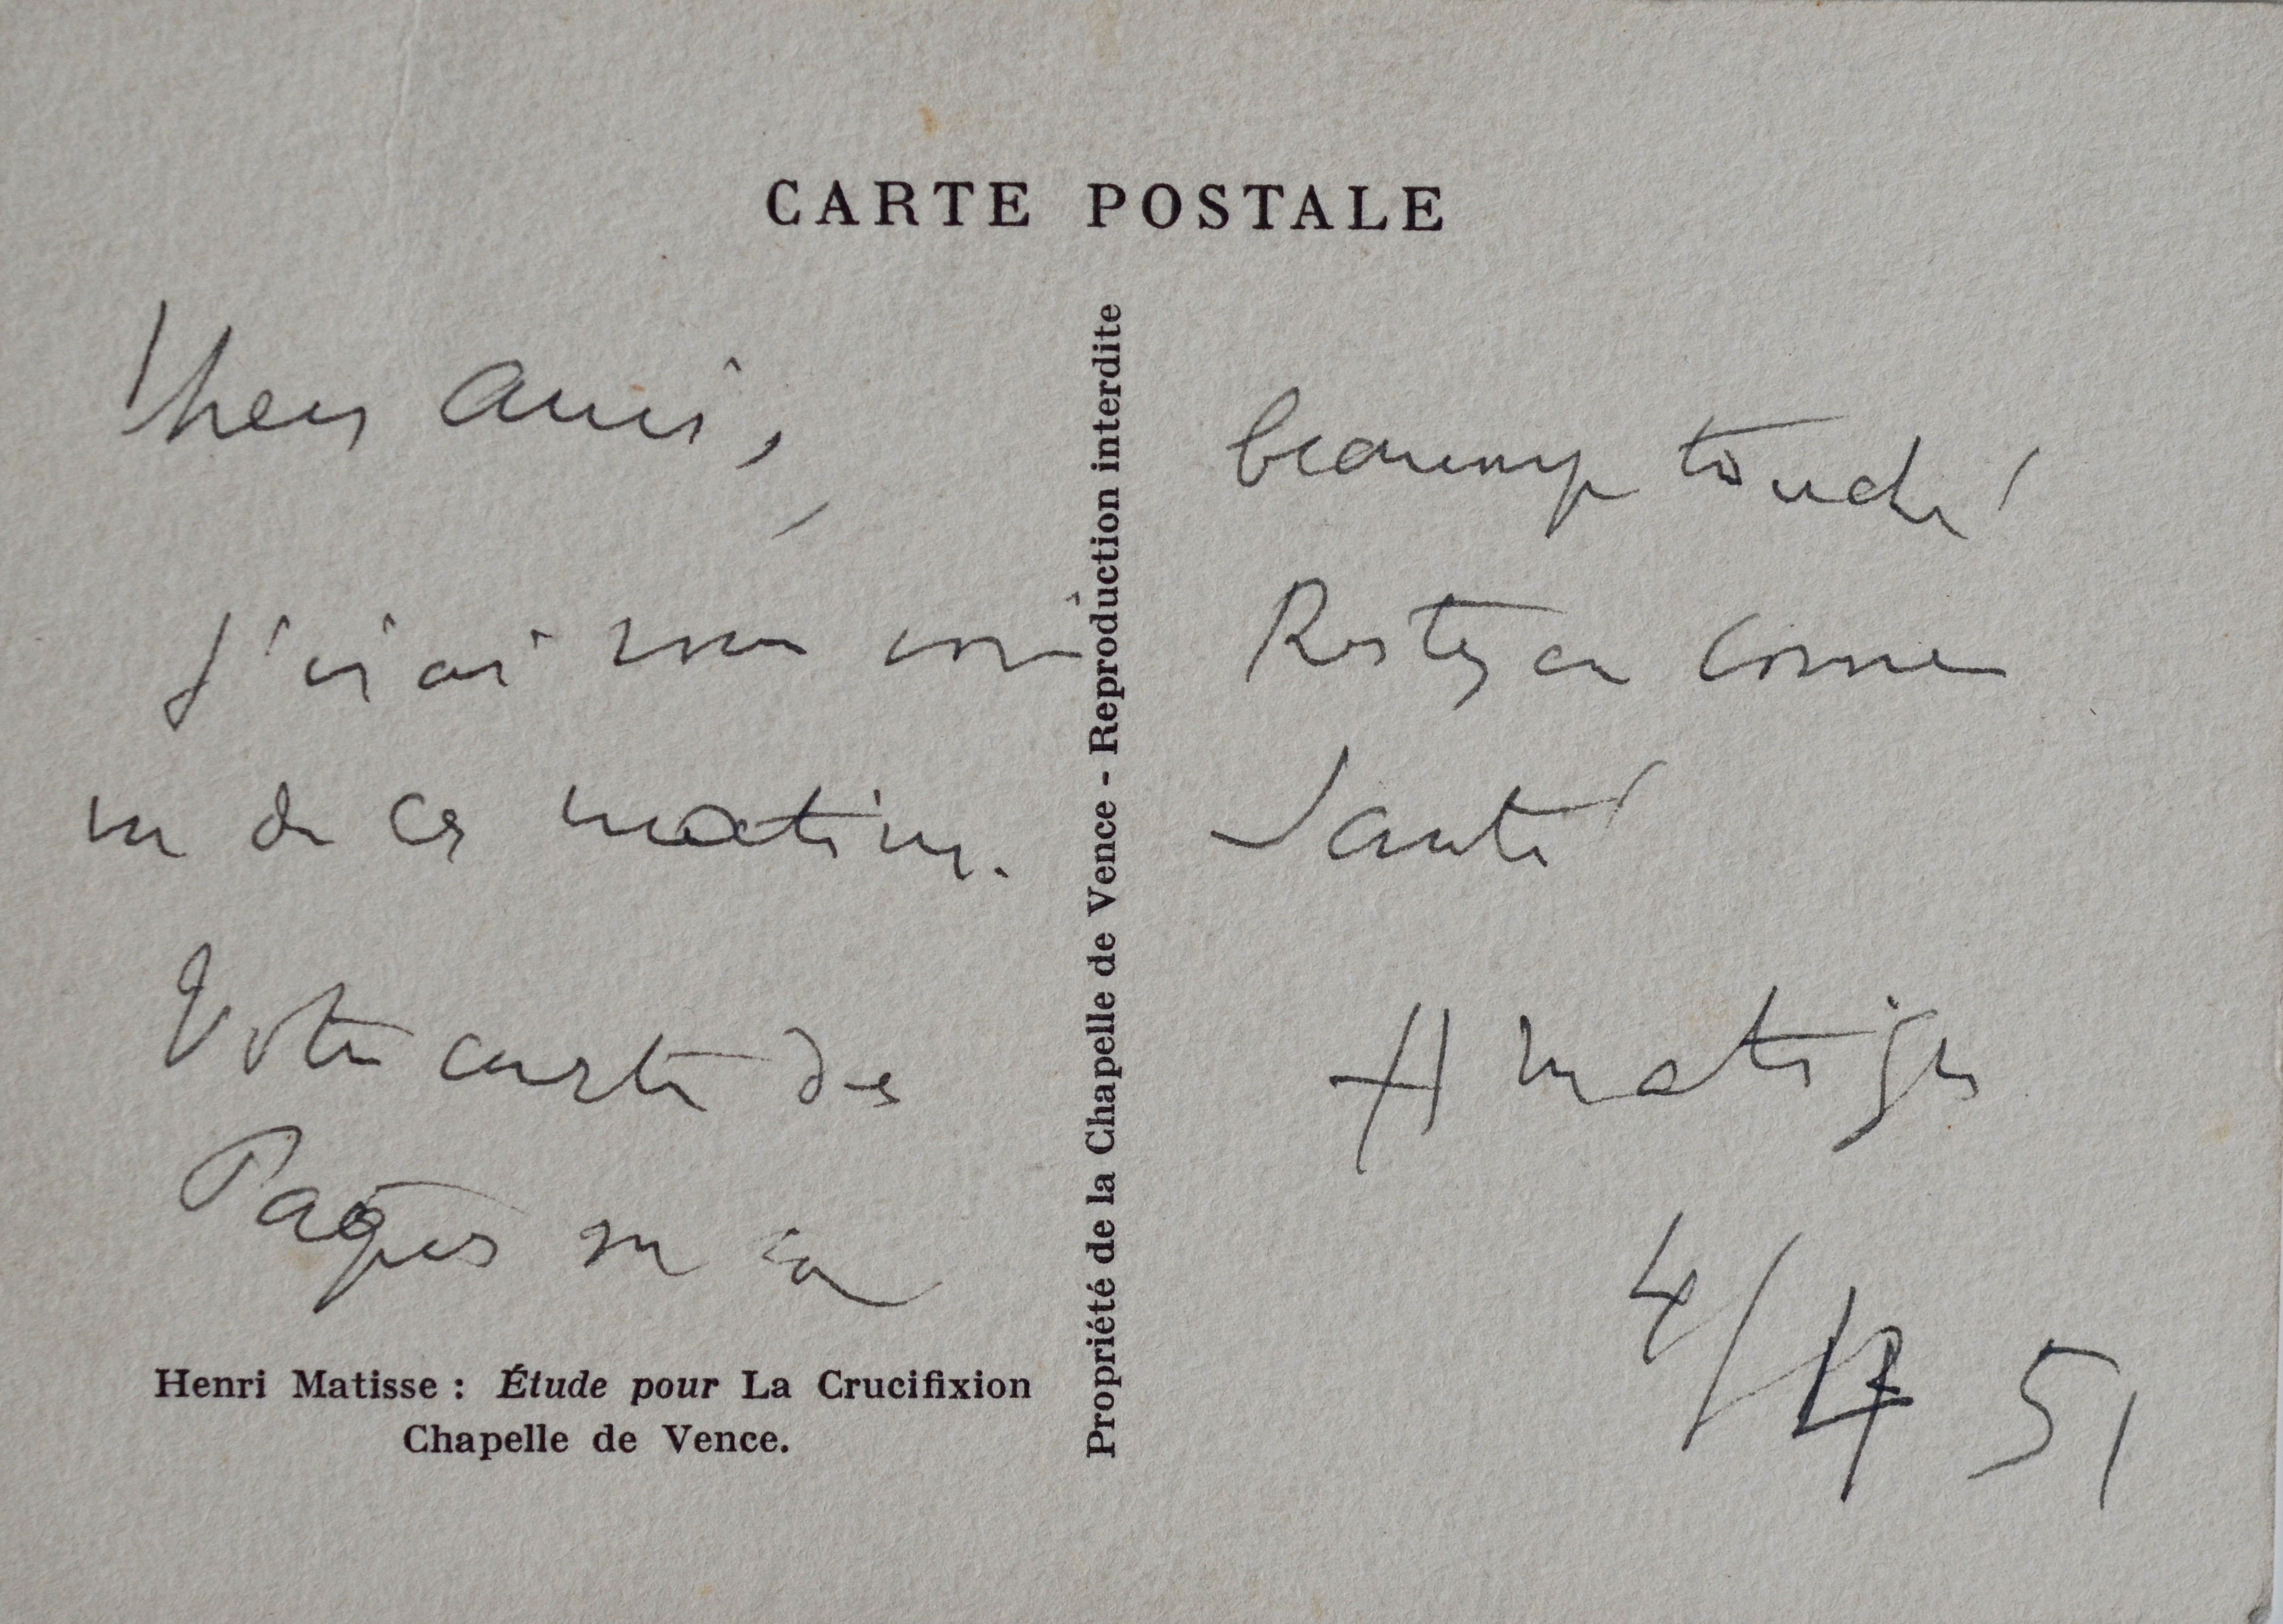 CARTE POSTALE
Chers amis,
J'irai vous voir
un de ces matins.
Votre carte de
Pâques m'a
beaucoup touché
Restez en bonne
Santé
H Matisse
4/4 51
Henri Matisse : Étude pour La Crucifixion
Chapelle de Vence.
Propriété de la Chapelle de Vence - Reproduction interdite